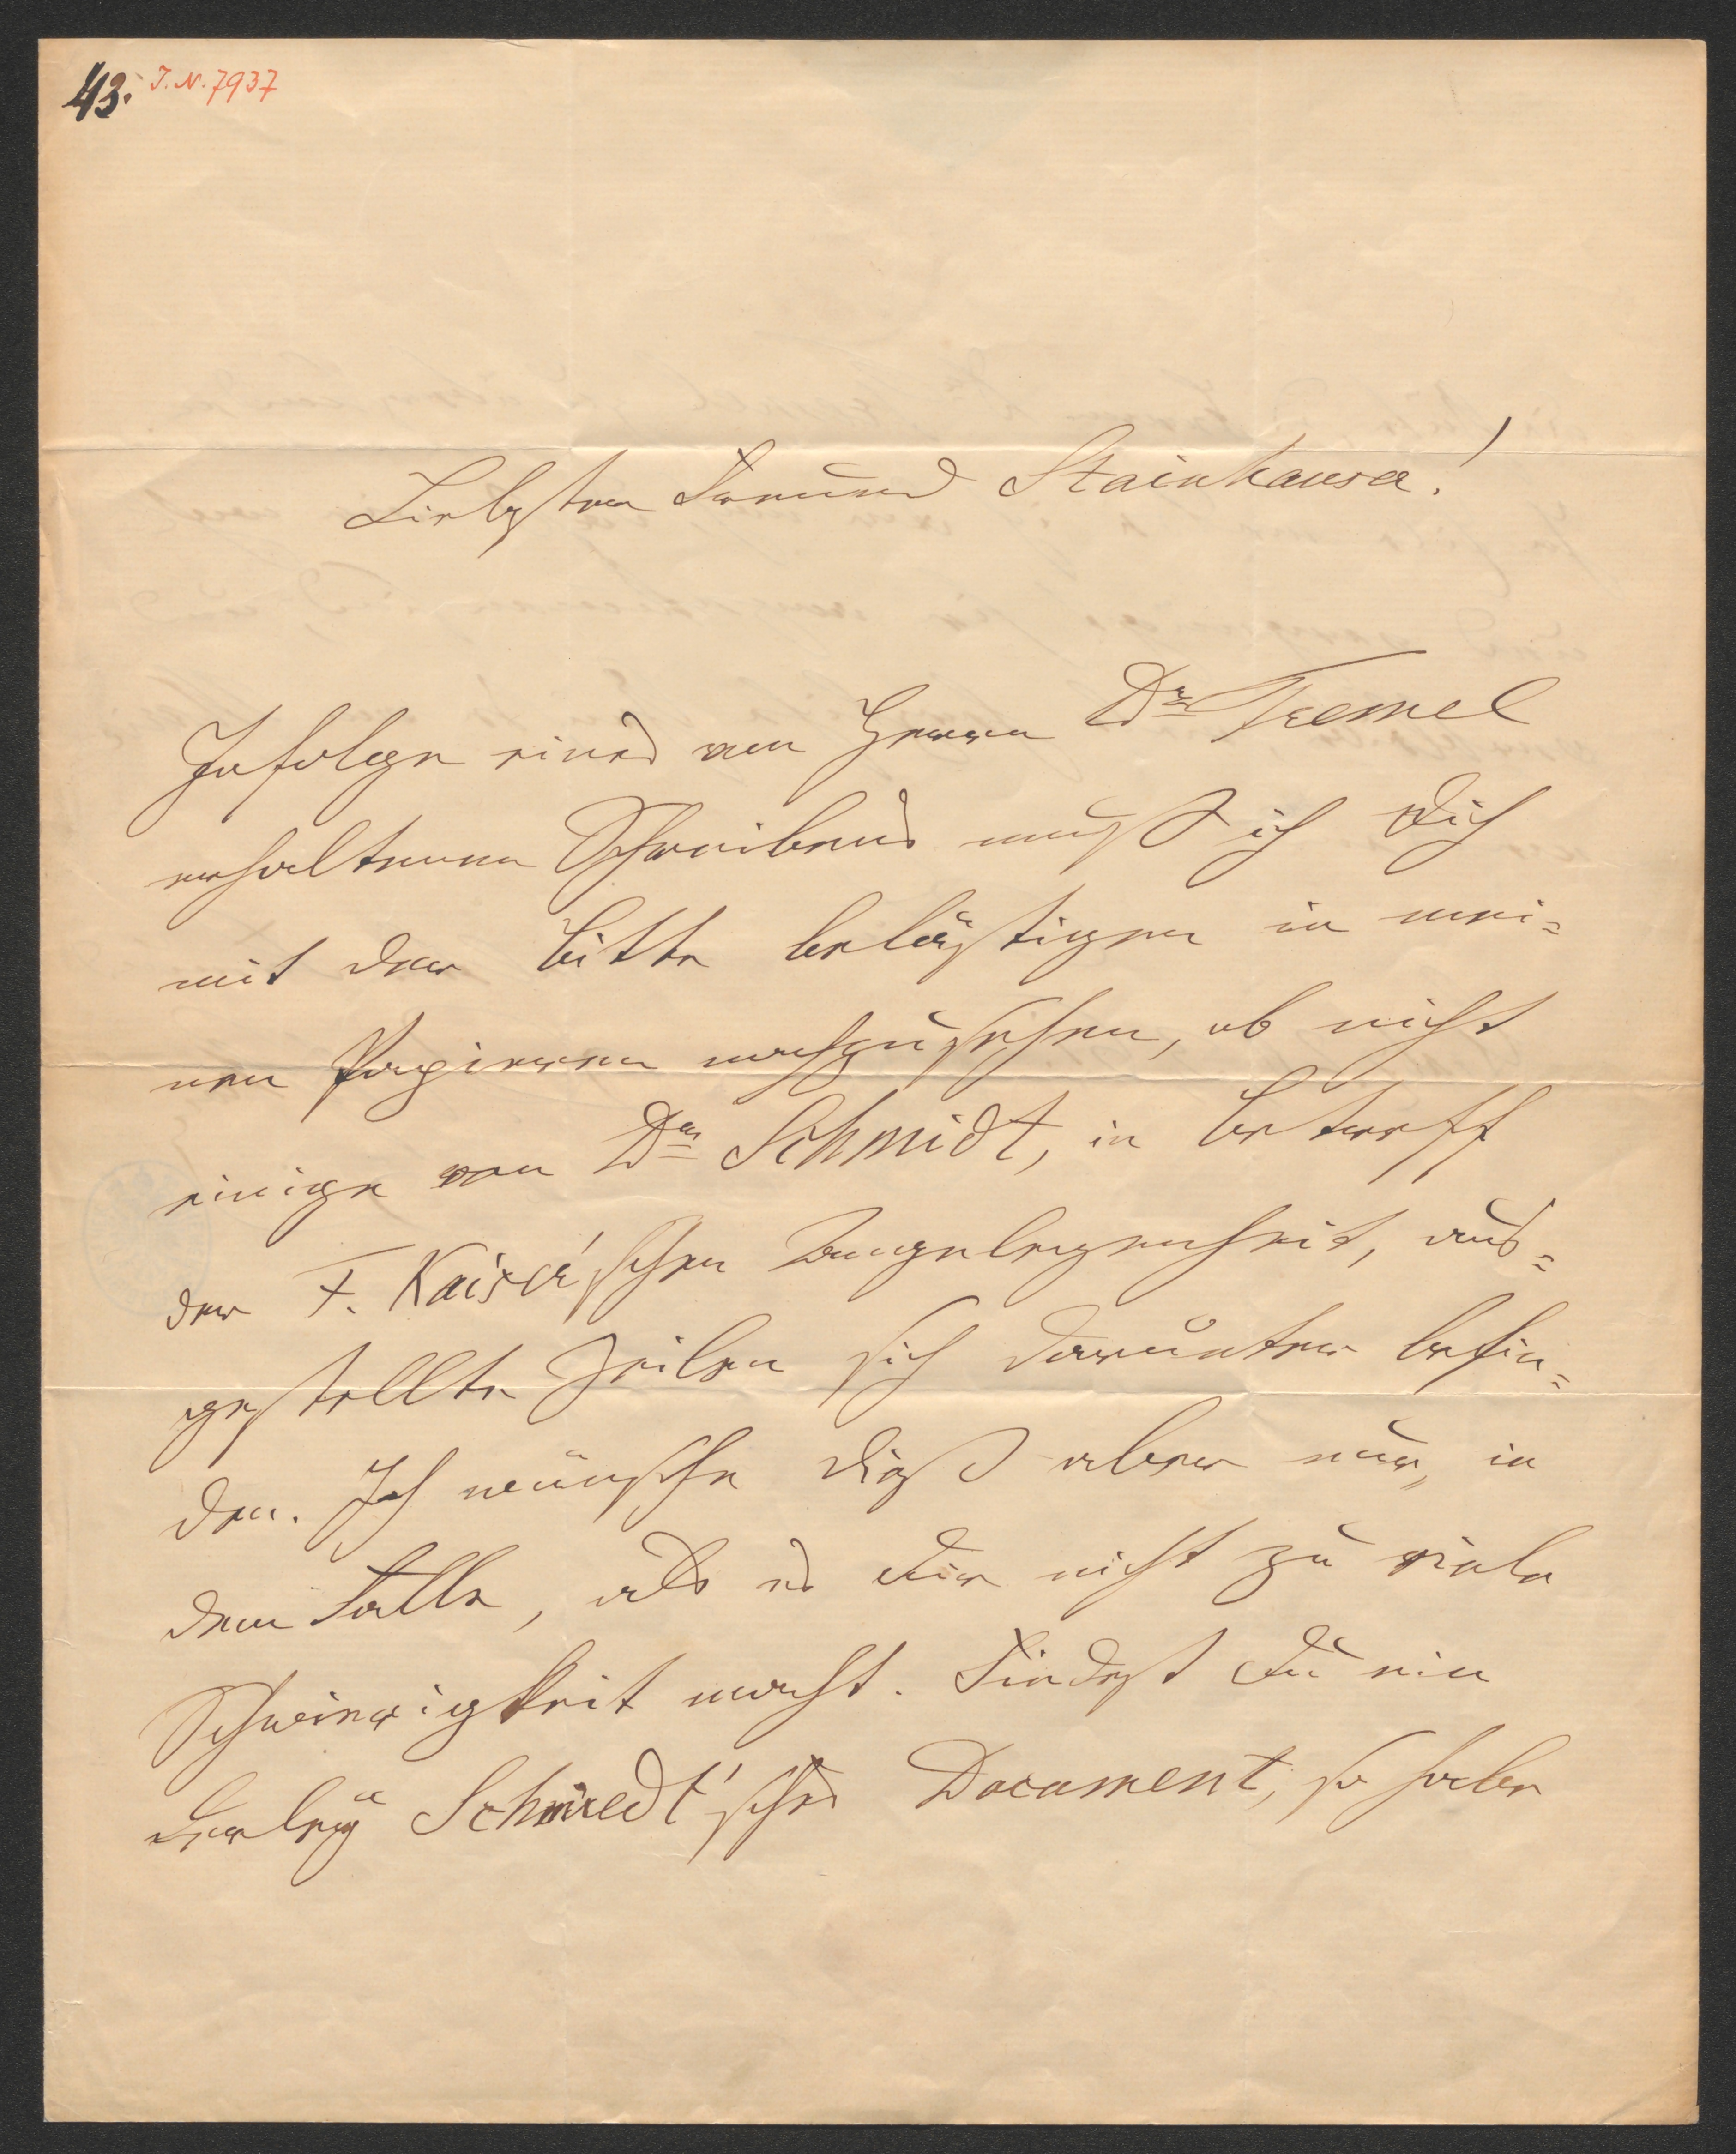 43. I.N. 7937
Liebster Freund Stainhauser!
Infolge eines von Herrn Dr Tremel
erhaltenen Schreibens muß ich Dich
mit der Bitte belästigen in mei=
nen Papieren nachzusehen, ob nicht
einige von Dr Schmidt, in Betreff
der F. Kaiser'schen Angelegenheit, aus=
gestellte Zeilen sich darunter befin=
den. Ich wünsche dieß aber nur in
dem Falle, als es Dir nicht zu viele
Schwierigkeit macht. Findest Du ein
derley Schmiedt'sches Document, so habe